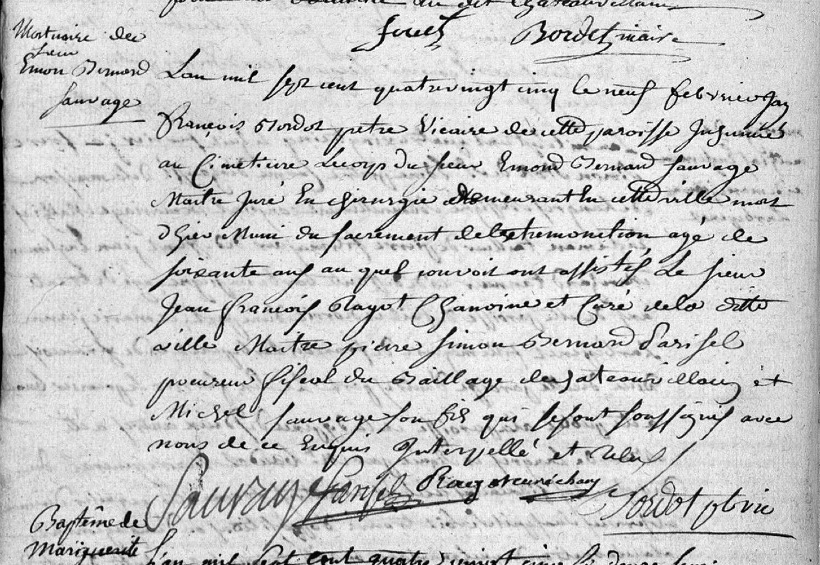 du dit Chateauvillain
Bordet maire
Mortuaire de
Sieur
Emon Bernard
Sauvage
Lan mil sept cent quatrevingt cinq le neuf febvrier Jay
françois Bordot petre Vicaire de cette paroisse Inhumé
au Cimetiere Le corps du sieur Emond Bernard Sauvage
Maitre Juré En chirurgie demeurant En cette ville mort
dhier Muni du sacrement de lextremontion agé de
soixante ans au quel convoit ont assistés Le sieur
Jean françois Ragot Chanoine et Curé de la ditte
ville Maitre pierre Simon Bernard Parisel
procureur fiscal du Baillage de Chateauvillain et
Michel Sauvage son fils qui se sont soussignés avec
nous de ce Enquis Interpellé et
Sauvage Parisel Ragot curé chan Bordot ptre vic
Baptême de
Marguerite
Lan mil sept cent quatre vingt cinq le douze